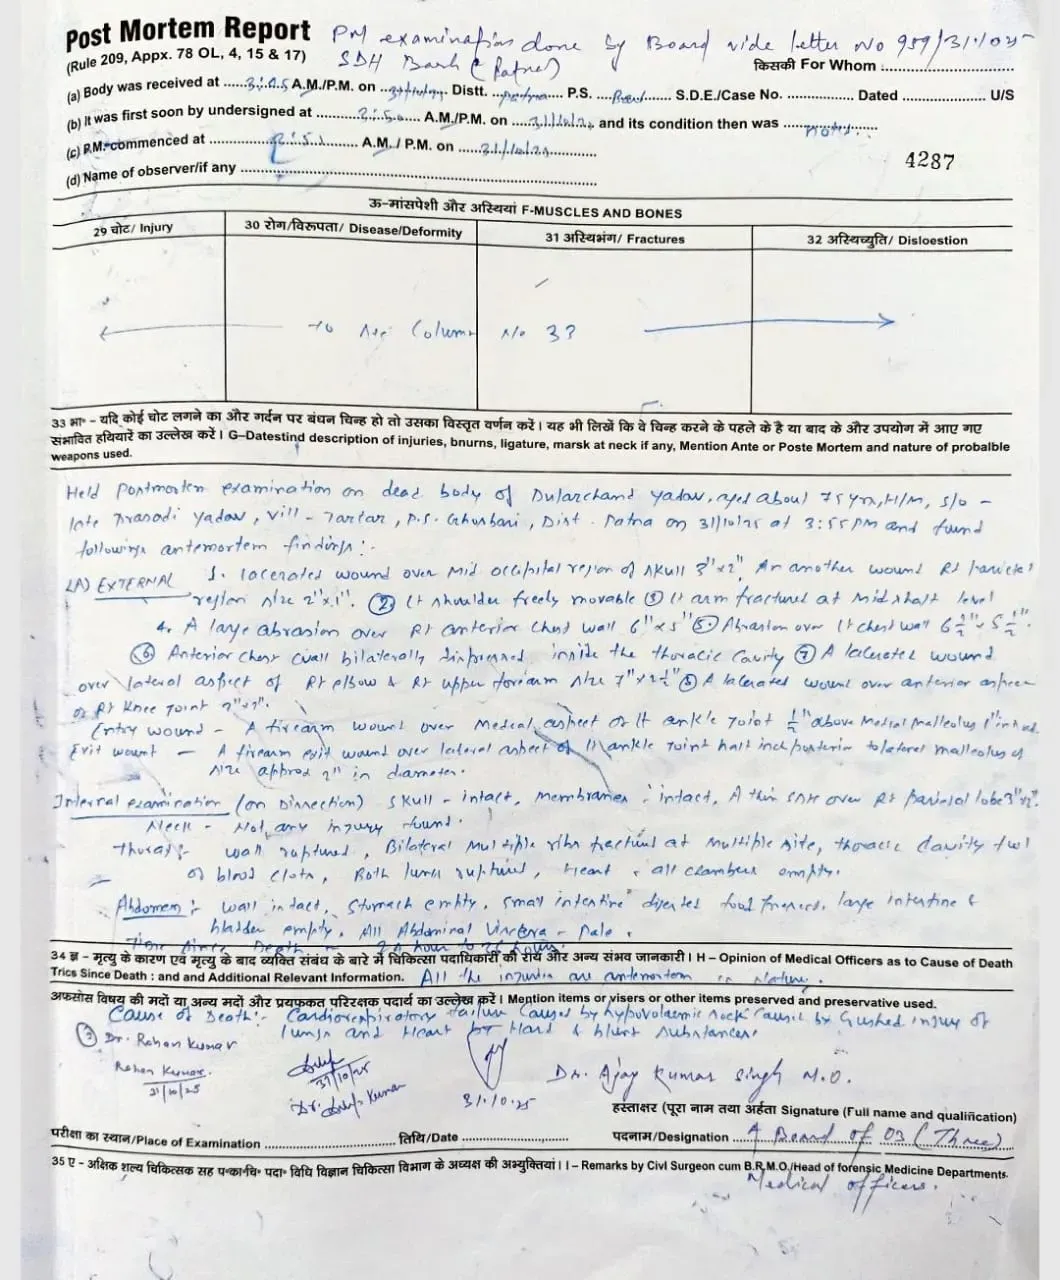 Post Mortem Report
PM examination done by Board vide letter No 959/31.10.25
(Rule 209, Appx. 78 OL, 4, 15 & 17)
SDH Barh (Patna)
किसकी For Whom
(a) Body was received at 3:45 A.M./P.M. on Distt. Patna P.S. S.D.E./Case No. Dated U/S
(b) It was first soon by undersigned at 3:50 A.M./P.M. on 31/10/25 and its condition then was
(c) P.M. commenced at A.M. / P.M. on 31/10/25
4287
(d) Name of observer/if any
ऊ-मांसपेशी और अस्थियां F-MUSCLES AND BONES
29 चोट/ Injury
30 रोग/विरूपता/ Disease/Deformity
31 अस्थिभंग/ Fractures
32 अस्थिच्युति/ Disloestion
to see Column No 33
33 भा॰ - यदि कोई चोट लगने का और गर्दन पर बंधन चिन्ह हो तो उसका विस्तृत वर्णन करें। यह भी लिखें कि वे चिन्ह करने के पहले के है या बाद के और उपयोग में आए गए
संभावित हथियारें का उल्लेख करें। G–Datestind description of injuries, bnurns, ligature, marsk at neck if any, Mention Ante or Poste Mortem and nature of probalble
weapons used.
Held Postmortem examination on dead body of Dularchand Yadav, aged about 75 yrs, H/M, S/o -
late Yadav, Vill - Tartar, P.S. Ghosbari, Dist. Patna on 31/10/25 at 3:55 PM and found
followings antemortem findings:-
(A) EXTERNAL 1. lacerated wound over mid occipital region of skull 3"x2", An another wound Rt parietal
region size 2"x1". (2) Lt shoulder freely movable (3) Lt arm fractured at mid shaft level
4. A large abrasion over Rt anterior chest wall 6"x5" (5) Abrasion over Lt chest wall 6½"x5½".
(6) Anterior chest wall bilaterally inside the thoracic cavity (7) A lacerated wound
over lateral aspect of Rt elbow & Rt upper forearm size 7"x2½" (8) A lacerated wound over anterior aspect
of Rt knee joint
Entry wound - A firearm wound over medial aspect of Lt ankle joint ½" above medial malleolus
Exit wount - A firearm exit wound over lateral aspect of Lt ankle joint half inch posterior to lateral malleolus of
size approx 2" in diameter.
Internal examination (on Dissection) Skull - intact, membranes : intact, A thin SDH over Rt parietal lobe
Neck - Not any injury found.
Thorax:- wall ruptured, Bilateral multiple ribs fractured at multiple site, thoracic cavity full
of blood clots, Both lungs ruptured, Heart - all chambers empty.
Abdomen:- wall intact, Stomach empty, small intestine digested food present, large intestine &
bladder empty, All Abdominal viscera - Pale.
Time since Death - 24 hour to 36 hours.
34 ब्र - मृत्यु के कारण एवं मृत्यु के बाद व्यक्ति संबंध के बारे में चिकित्सा पदाधिकारी की राय और अन्य संभव जानकारी। H - Opinion of Medical Officers as to Cause of Death
Trics Since Death : and and Additional Relevant Information. All the injuries are antemortem in nature.
अफसोस विषय की मदों या अन्य मदों और प्रयफूकत परिरक्षक पदार्थ का उल्लेख करें। Mention items or visers or other items preserved and preservative used.
Cause of Death:- Cardiorespiratory failure caused by hypovolaemic shock by Crushed injury of
lungs and Heart by Hard & blunt substances.
(3) Dr. Rohan Kumar
Rohan Kumar
31/10/25
31/10/25
Dr. Kumar
31.10.25
Dr. Ajay Kumar Singh M.O.
हस्ताक्षर (पूरा नाम तथा अर्हता Signature (Full name and qualification)
परीक्षा का स्थान/Place of Examination तिथि/Date पदनाम/Designation A Board of 03 (Three)
35 ए - अक्षिक शल्य चिकित्सक सह प॰का॰चि॰ पदा॰ विधि विज्ञान चिकित्सा विभाग के अध्यक्ष की अभ्युक्तियां। I – Remarks by Civl Surgeon cum B.R.M.O./Head of forensic Medicine Departments.
Medical officers.